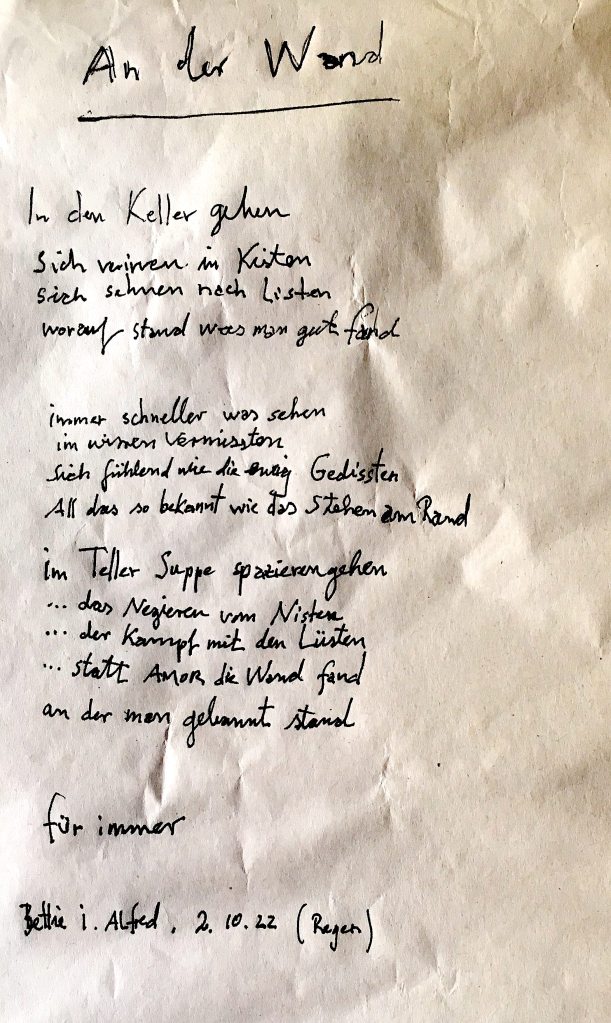 An der Wand
In den Keller gehen
sich wirren in Kisten
sich sehnen nach Listen
worauf stand was man gut fand
immer schneller was sehen
im wirren Vermissten
sich fühlend wie die ewig Gedissten
All das so bekannt wie das Stehen am Rand
im Teller Suppe spazierengehen
... das Negieren vom Nisten
... der Kampf mit den Lüsten
... statt AMOR die Wand fand
an der man gebannt stand
für immer
Bettie i. Alfred, 2.10.22 (Regen)